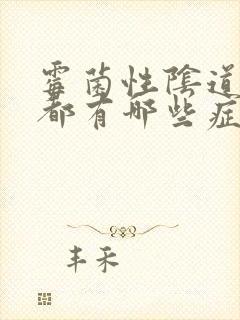 霉菌性陰道
都有哪些症
丰禾